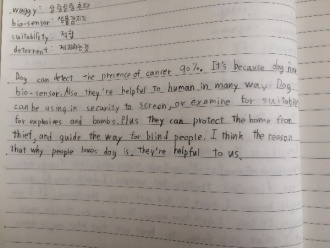 waggy: 살랑살랑 흔드
bio-sensor: 생물감지
suitability: 적합
deterrent: 제지하는것
Dog can detect the presence of cancer 90%. It's because dog
bio-sensor. Also they're helpful to human in many way. Dog
can be using in security to screen, or examine for
for explosives and bombs. Plus they can protect the home from
thief, and guide the way for blind people. I think the reason
that why people dog is, they're helpful to us.